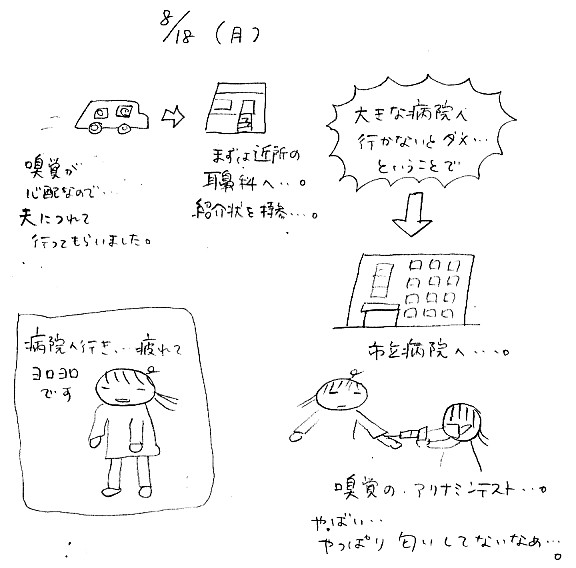 8/18 (月)
嗅覚が
心配なので…
夫につれて
行ってもらいました。
まずは近所の
耳鼻科へ…。
紹介状を持参…。
大きな病院へ
行かないとダメ…
ということで
市立病院へ…。
嗅覚の、アリナミンテスト…。
やばい…
やっぱり 匂いしてないなぁ…。
病院へ行き… 疲れて
ヨロヨロ
です